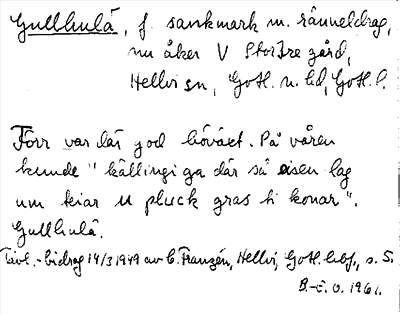 Gullhulä, f. sankmark m. ränneldrag,
nu åker V Stor Ire gård,
Hellvi sn, Gotl. n. hd, Gotl. l.
Förr var där god höväxt. På våren
kunde "källingi ga där så isen lag
um knar u pluck gras ti konar".
Gullhulä.
bidrag 14/3 1949 av C. Franzén, Hellvi, Gotl. s. 5.
B.-E. O. 1961.